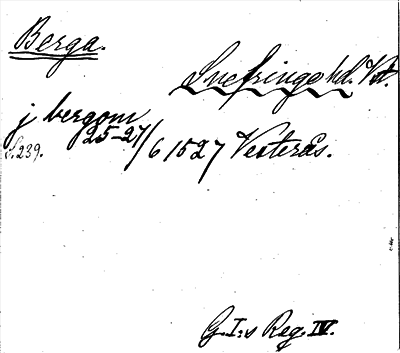 Berga.
Snefringe hd. Vstm.
j bergom
25-27/6 1527 Vesterås.
S. 239.
G. I:s Reg. IV.